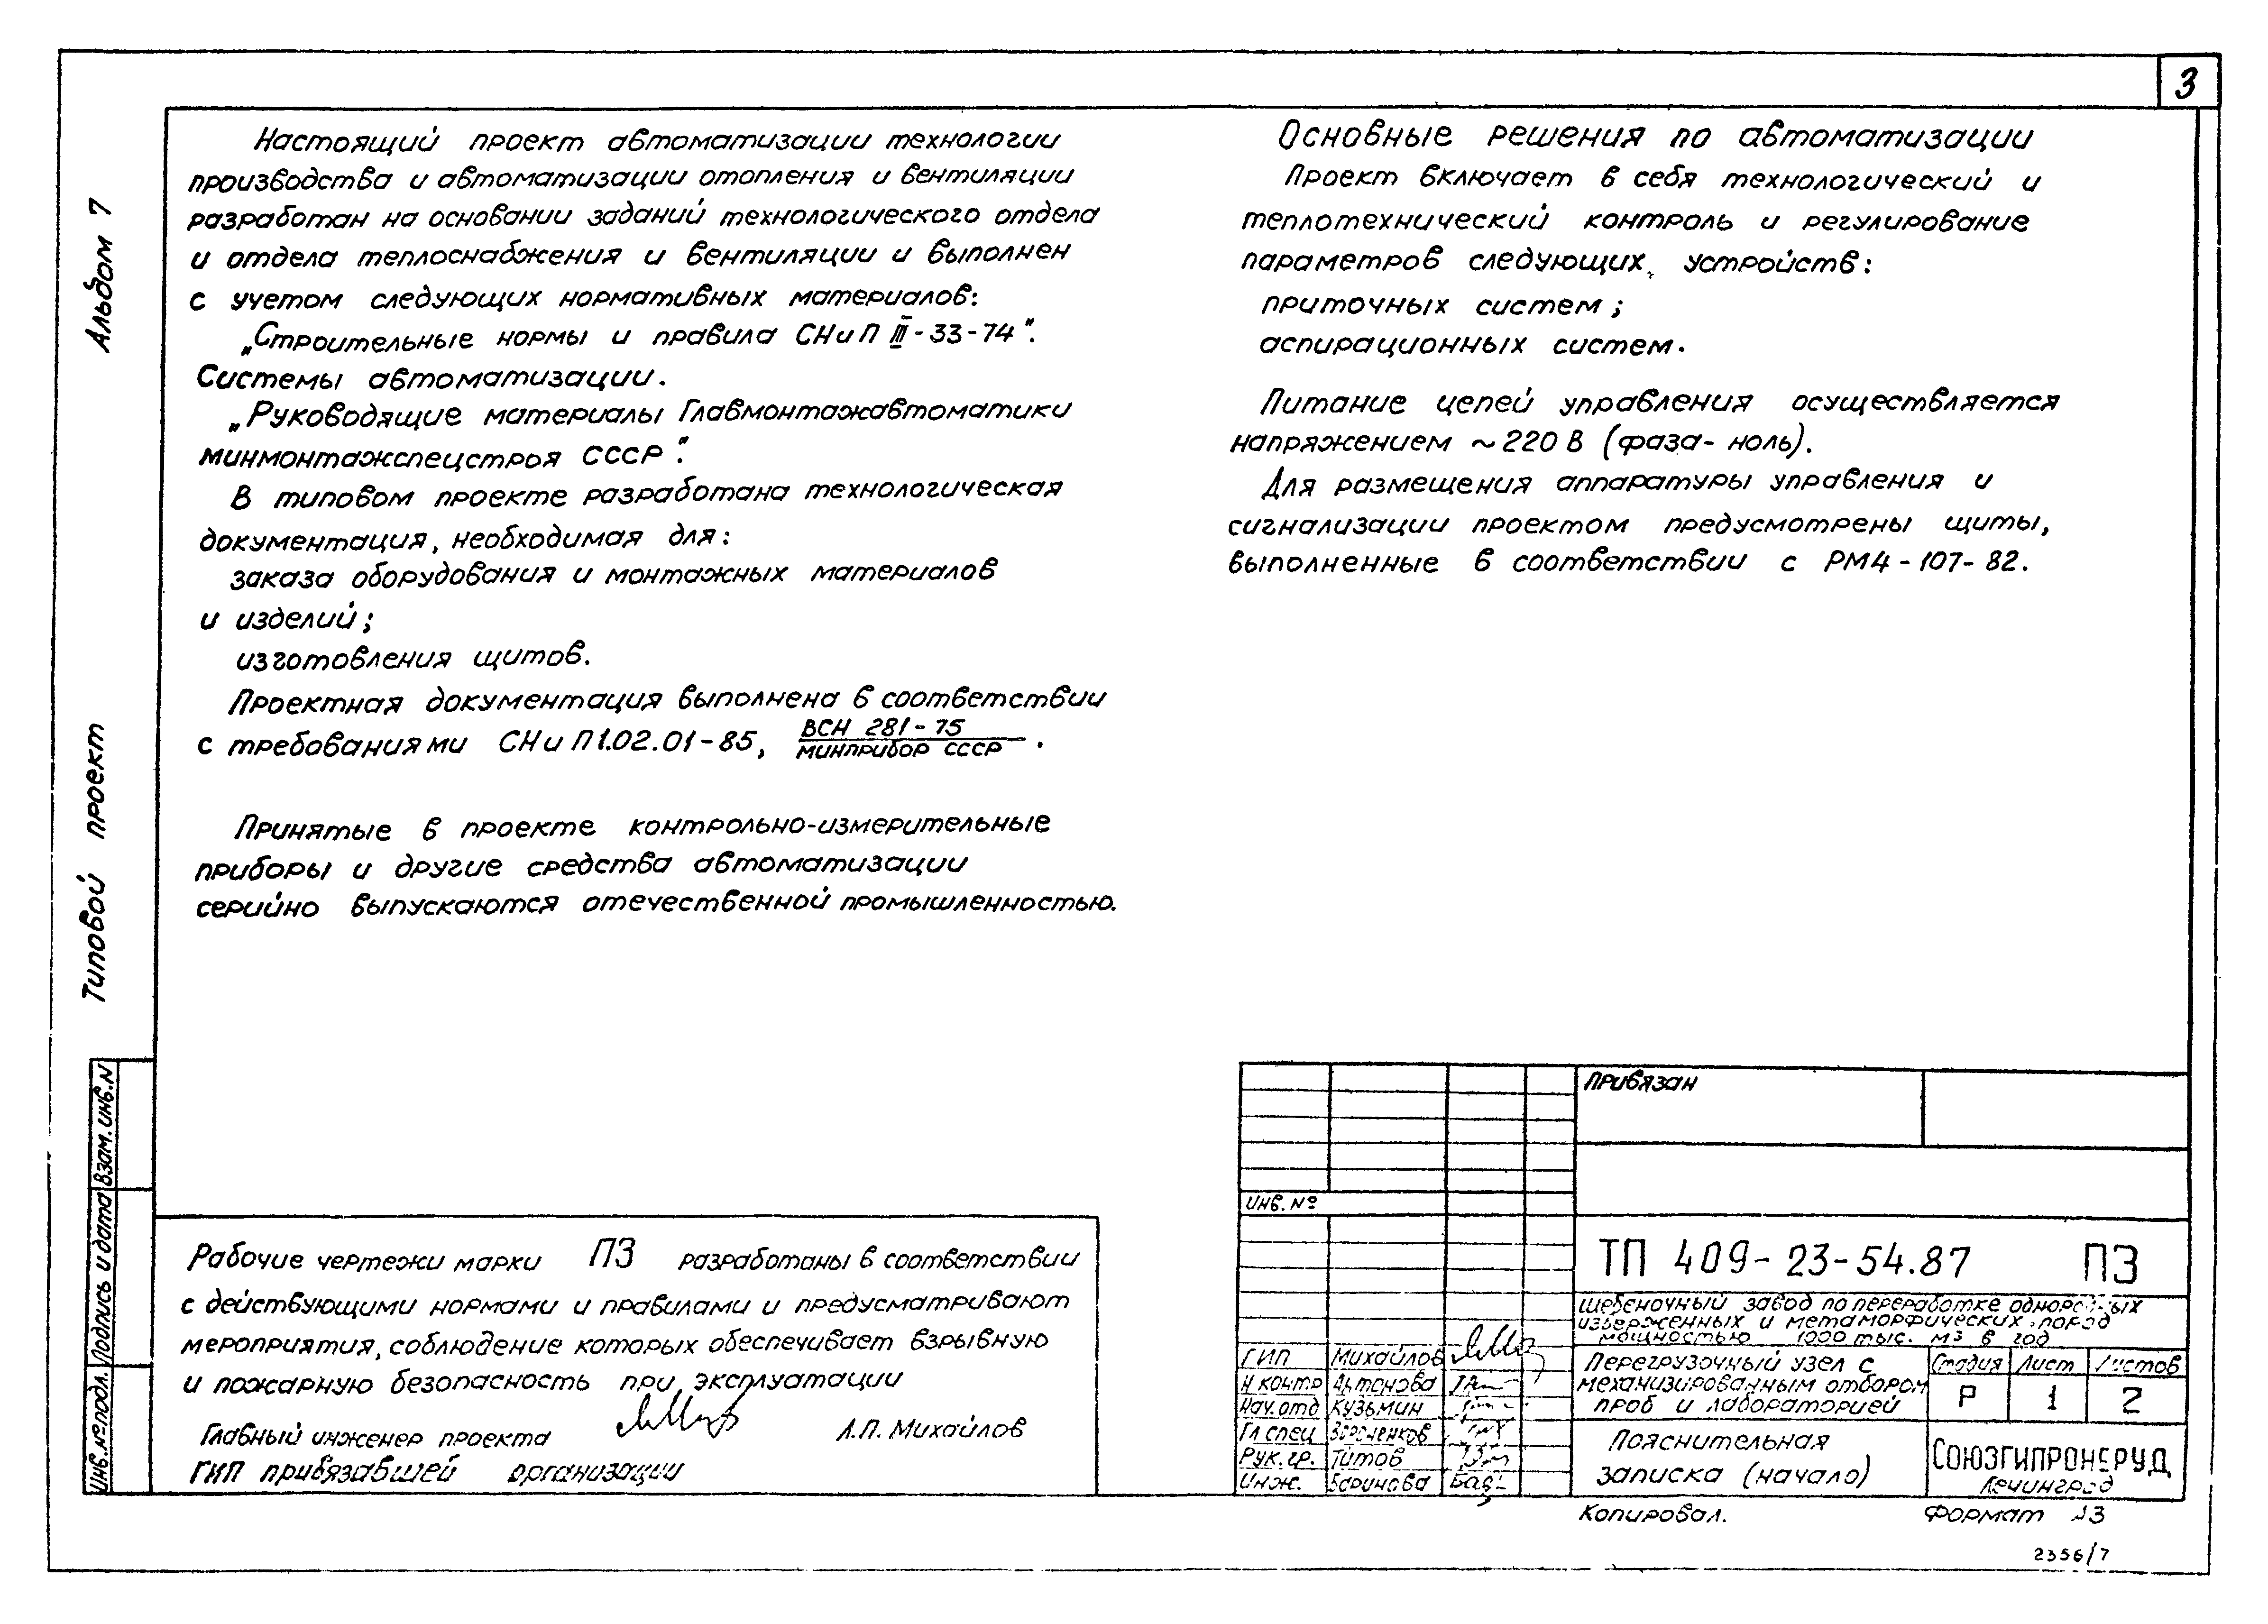 3
Альбом 7
Типовой проект
Настоящий проект автоматизации технологии
производства и автоматизации отопления и вентиляции
разработан на основании заданий технологического отдела
и отдела теплоснабжения и вентиляции и выполнен
с учетом следующих нормативных материалов:
„Строительные нормы и правила СНиП III-33-74".
Системы автоматизации.
„Руководящие материалы Главмонтажавтоматики
минмонтажспецстроя СССР".
В типовом проекте разработана технологическая
документация, необходимая для:
заказа оборудования и монтажных материалов
и изделий;
изготовления щитов.
Проектная документация выполнена в соответствии
с требованиями СНиП 1.02.01-85, ВСН 281-75
минприбор СССР .
Принятые в проекте контрольно-измерительные
приборы и другие средства автоматизации
серийно выпускаются отечественной промышленностью.
Основные решения по автоматизации
Проект включает в себя технологический и
теплотехнический контроль и регулирование
параметров следующих устройств:
приточных систем;
аспирационных систем.
Питание цепей управления осуществляется
напряжением ~220 В (фаза-ноль).
Для размещения аппаратуры управления и
сигнализации проектом предусмотрены щиты,
выполненные в соответствии с РМ4-107-82.
Взам. инв. N
Подпись и дата
Инв. № подл.
Рабочие чертежи марки ПЗ разработаны в соответствии
с действующими нормами и правилами и предусматривают
мероприятия, соблюдение которых обеспечивает взрывную
и пожарную безопасность при эксплуатации
Главный инженер проекта А.П. Михайлов
ГИП привязавшей организации
Привязан
Инв. №
ТП 409-23-54.87 ПЗ
щебеночный завод по переработке однородных
изверженных и метаморфических пород
мощностью 1000 тыс. м3 в год
ГИП Михайлов
Н контр Антонова
Нач. отд Кузьмин
Гл спец
Рук. гр. Титов
Инж. Баринова
Перегрузочный узел с
механизированным отбором
проб и лабораторией
Стадия Лист Листов
Р 1 2
Пояснительная
записка (начало)
Союзгипронеруд
Ленинград
Копировал.
Формат А3
2356/7